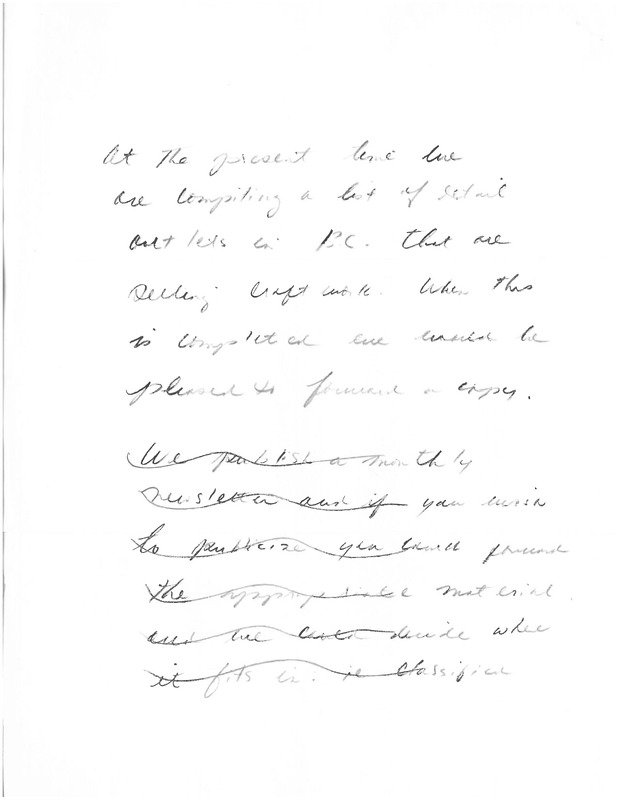 At the present time we
are compiling a list of retail
outlets in B.C. that are
selling craft work. When this
is completed we would be
pleased to forward a copy.
We publish a monthly
newsletter and if you wish
to publicize you could forward
the appropriate material
and we could decide where
it fits in. ie classified